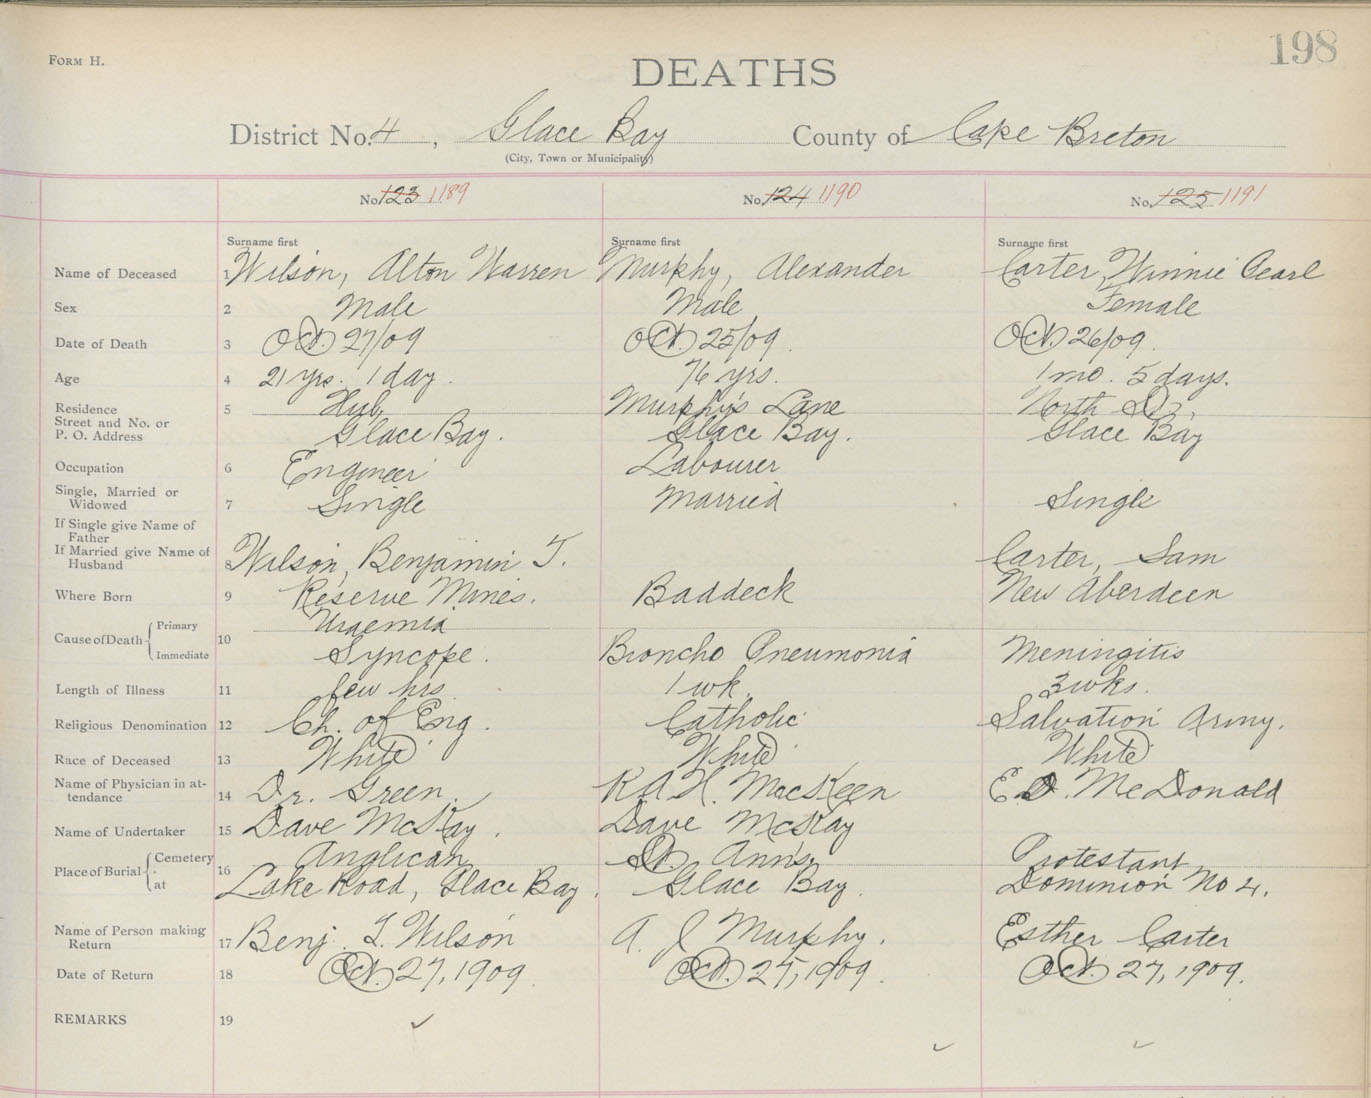 198
FORM H.
DEATHS
District No. 4, Glace Bay County of Cape Breton
(City, Town or Municipality)
No. 123 1189 No. 124 1190 No. 125 1191
Surname first Surname first Surname first
Name of Deceased 1 Wilson, Alton Warren Murphy, Alexander Carter, Winnie Pearl
Sex 2 Male Male Female
Date of Death 3 Oct. 27/09 Oct. 25/09. Oct. 26/09.
Age 4 21 yrs. 1 day. 76 yrs. 1 mo. 5 days.
Residence 5 Hub, Murphy's Lane North St.,
Street and No. or
P. O. Address Glace Bay. Glace Bay. Glace Bay
Occupation 6 Engineer Labourer
Single, Married or
Widowed 7 Single Married Single
If Single give Name of
Father
If Married give Name of
Husband 8 Wilson, Benjamin T. Carter, Sam
Where Born 9 Reserve Mines. Baddeck New Aberdeen
Cause of Death Primary 10 Uraemia
Immediate Syncope. Broncho Pneumonia Meningitis
Length of Illness 11 few hrs. 1 wk. 3 wks.
Religious Denomination 12 Ch. of Eng. Catholic Salvation Army.
Race of Deceased 13 White White White
Name of Physician in at-
tendance 14 Dr. Green. R A H. MacKeen E. D. McDonald
Name of Undertaker 15 Dave McKay. Dave McKay
Place of Burial Cemetery 16 Anglican St. Ann's, Protestant
at Lake Road, Glace Bay. Glace Bay. Dominion No 4.
Name of Person making
Return 17 Benj. T. Wilson A. J Murphy. Esther Carter
Date of Return 18 Oct. 27, 1909. Oct. 27, 1909. Oct. 27, 1909.
REMARKS 19